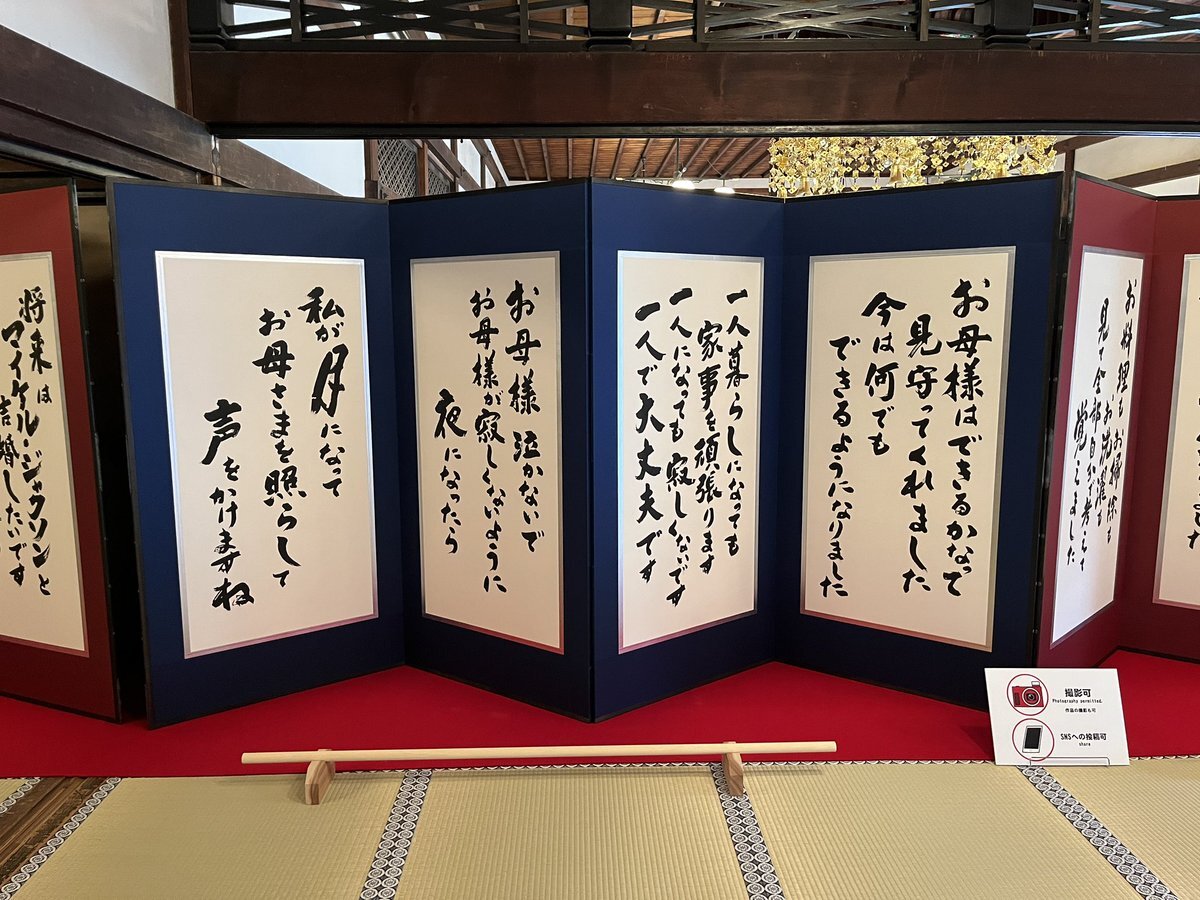 お母様はできるかなって
見守ってくれました
今は何でも
できるようになりました
一人暮らしになっても
家事を頑張ります
一人になっても寂しくないです
一人で大丈夫です
お母様 泣かないで
お母様が寂しくないように
夜になったら
私が月になって
お母さまを照らして
声をかけますね
将来は
マイケル・ジャクソンと
結婚したいです
お料理も お掃除も
お洗濯も
見て全部自分で考えて
覚えました
撮影可
Photography permitted.
作品の撮影も可
SNSへの投稿可
share